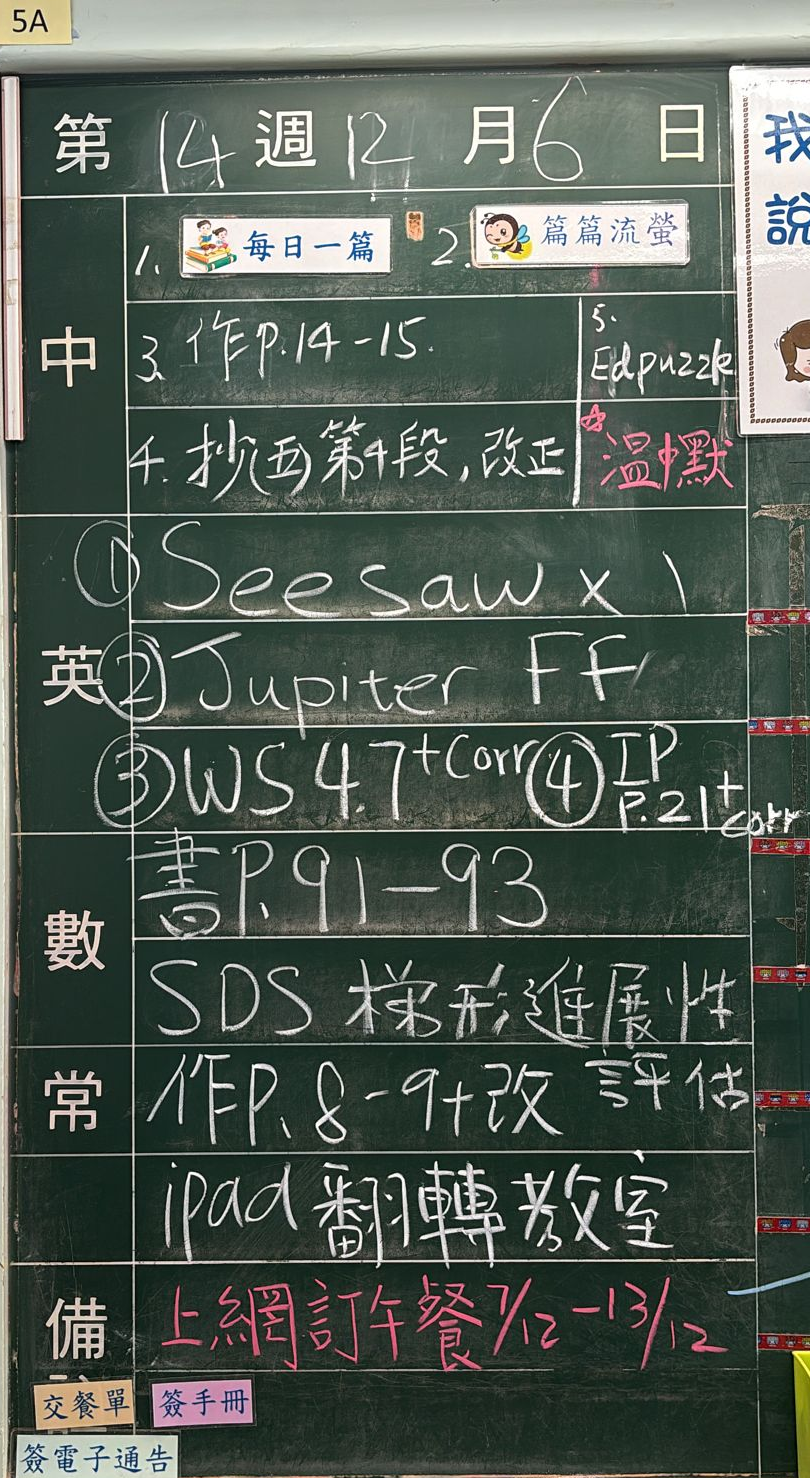 5A
第14週12月6日
中
1. 每日一篇 2. 篇篇流螢
3. 作P.14-15.
5. Edpuzzle
4. 抄(五)第4段,改正
☆溫中默
英
① Seesaw x 1
② Jupiter FF
③ WS 4.7 +corr ④ IP P.21 + corr
數
書P.91-93
SDS 梯形進展性評估
常
作P.8-9+改
ipad 翻轉教室
備
上網訂午餐 7/12-13/12
交餐單 簽手冊
簽電子通告
我
說